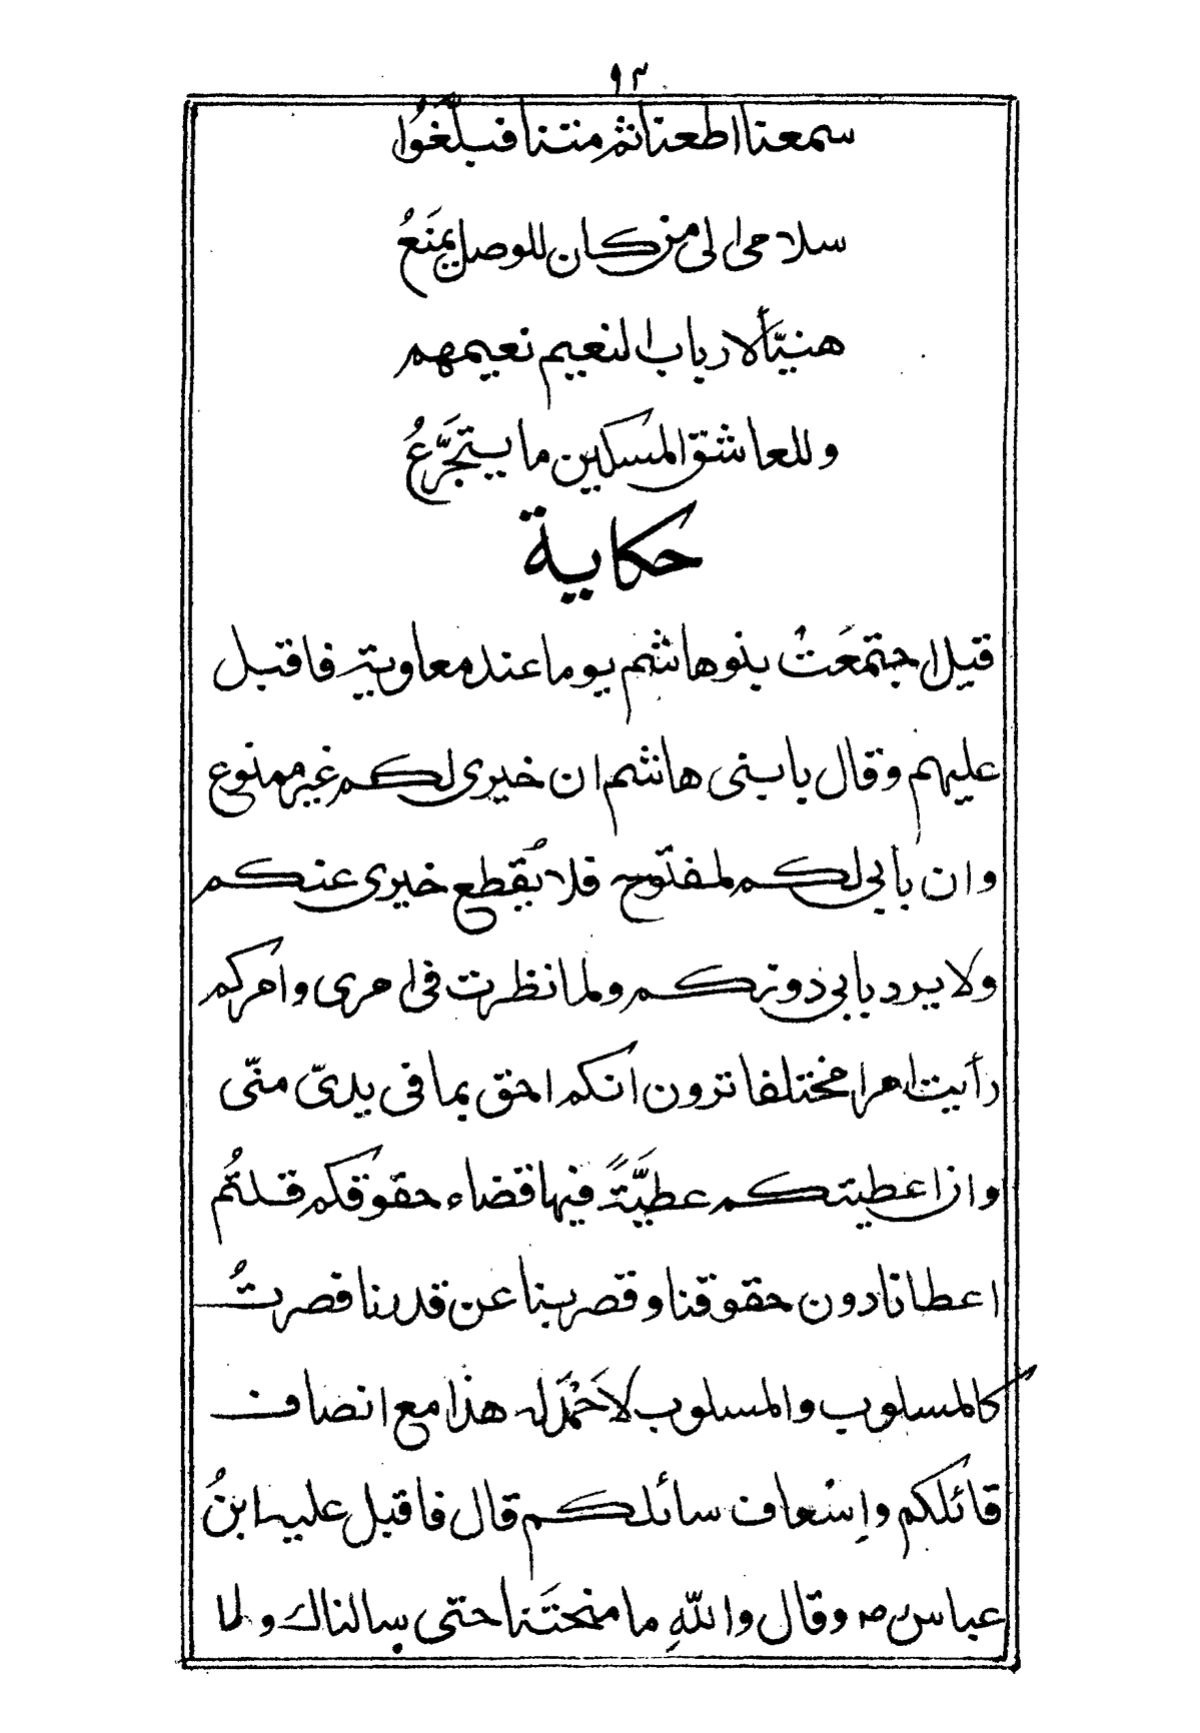 ٩٣
سمعنا اطعنا ثم متنا فبلّغُوا
سلامى الى من كان للوصل يمنَعُ
هنيّأ لارباب النعيم نعيمهم
وللعاشق المسكين ما يتجَرَّعُ
حكاية
قيل اجتمعَتْ بنو هاشم يوما عند معاوية فاقبل
عليهم وقال يا بنى هاشم ان خيرى لكم غير ممنوع
وان بابى لكم لمفتوح فلا يُقطع خيرى عنكم
ولا يرد بابى دونكم ولما نظرت فى امرى وامركم
رأيت امرا مختلفا ترون انكم احق بما فى يدىّ منّى
وان اعطيتكم عطيَّةً فيها قضاء حقوقكم قلتُم
اعطانا دون حقوقنا وقصر بنا عن قدرنا فصرتُ
كالمسلوب والمسلوب لا حَمْدَ له هذا مع انصاف
قائلكم واِسْعاف سائلكم قال فاقبل عليه ابنُ
عباس رض وقال واللهِ ما منحتَنا حتى سالناك ولا